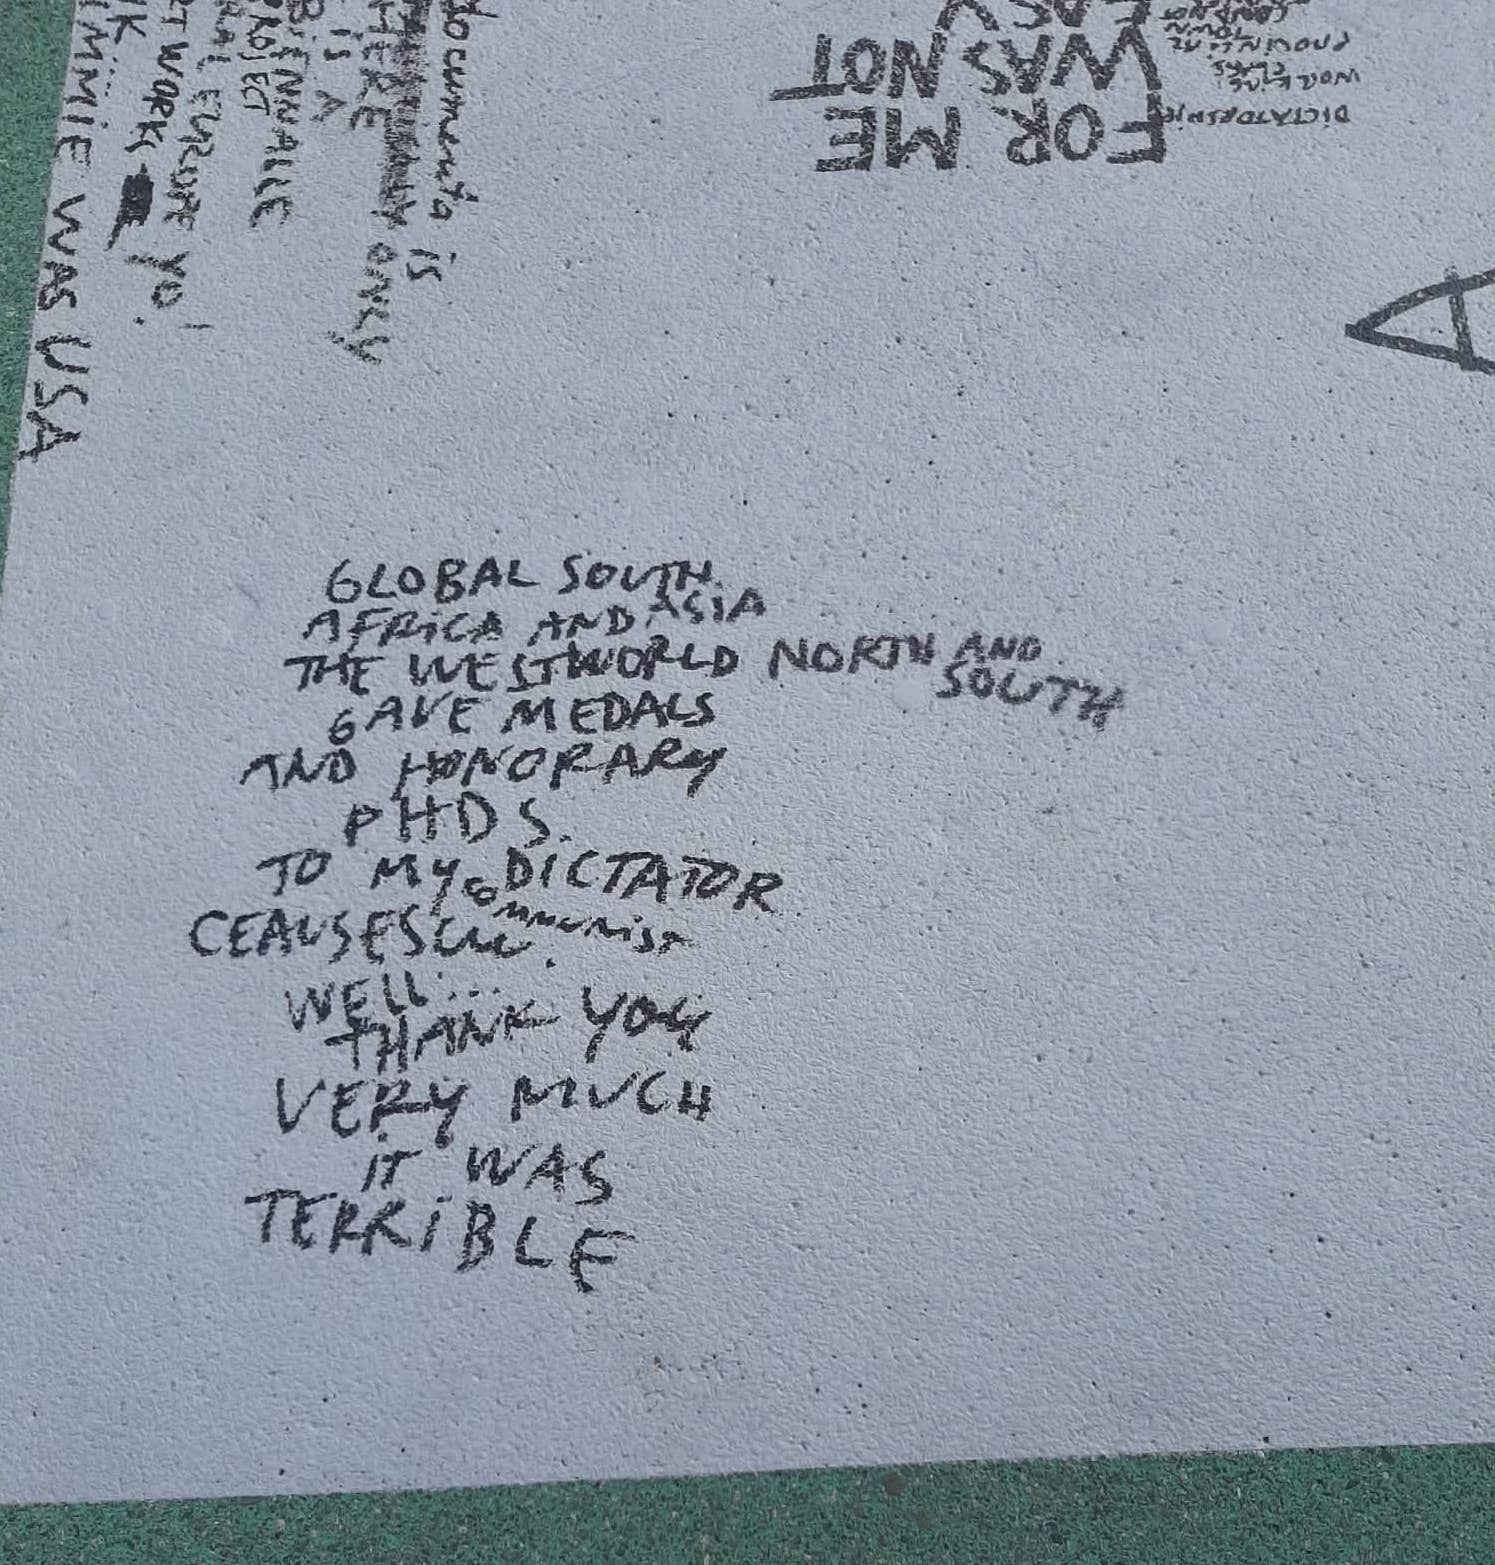 documenta is
ONLY
THERE
IS A
BIENNALLE
PROJECT
EUROPE YO!
ART WORK
WAS USA
FOR ME
WAS NOT
EASY
DICTATORSHIP
PROVINCIAL
TOWN
A
GLOBAL SOUTH
AFRICA AND ASIA
THE WESTWORLD NORTH AND
SOUTH
GAVE MEDALS
AND HONORARY
PHDS.
TO MY COMMUNIST DICTATOR
CEAUSESCU.
WELL...
THANK YOU
VERY MUCH
IT WAS
TERRIBLE